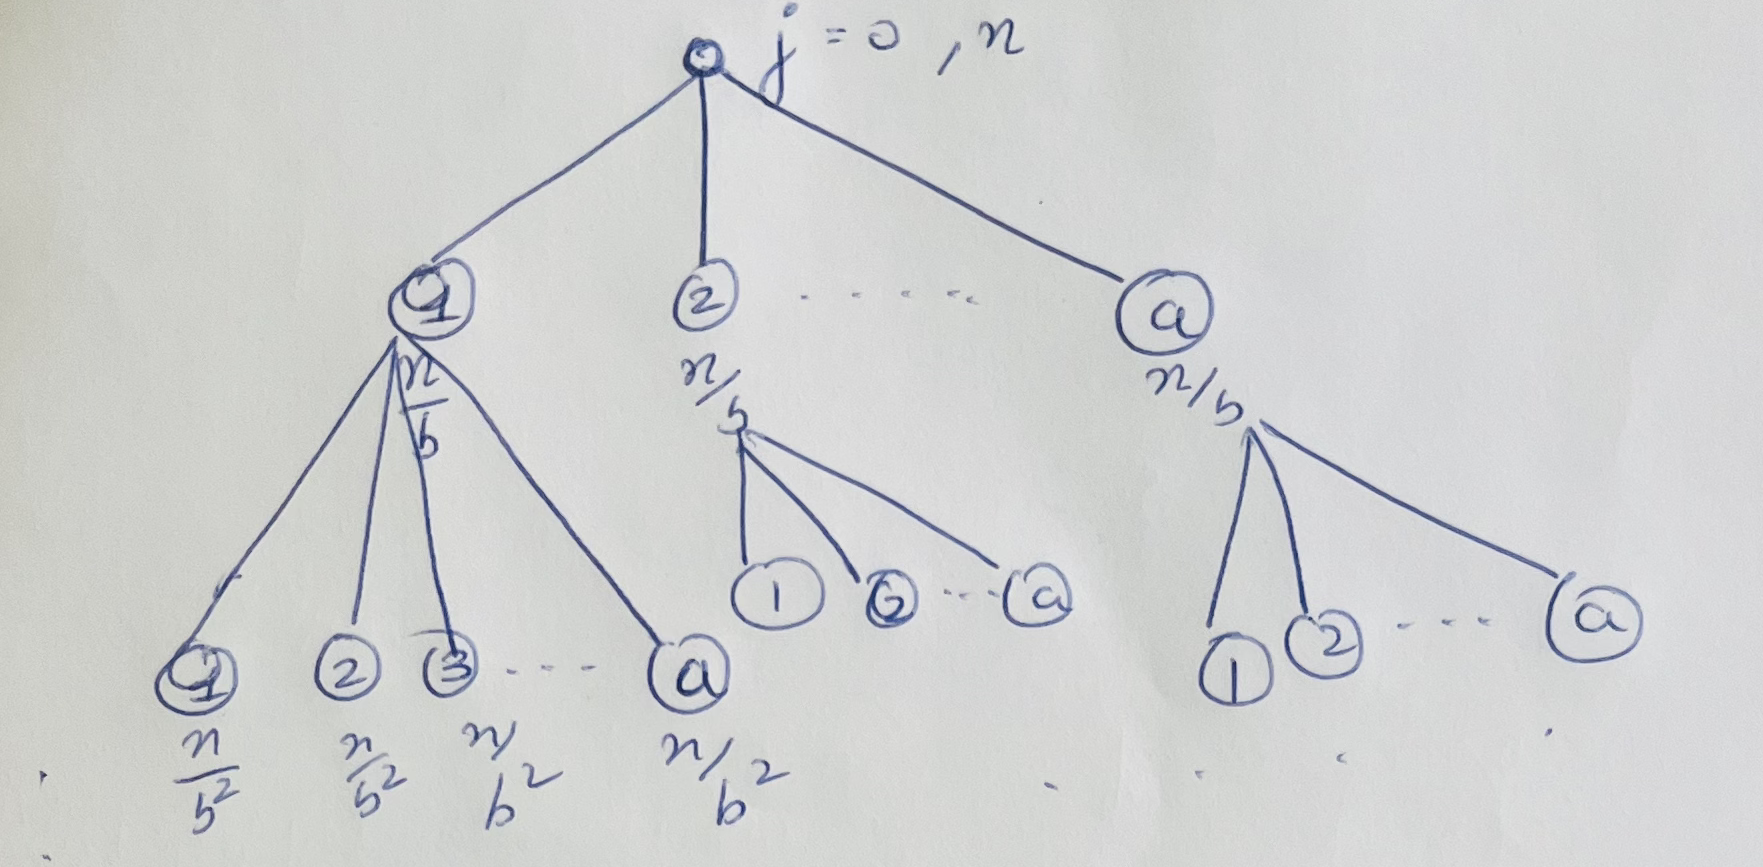 j = 0 , n
1 2 ..... a
n/b n/b n/b
1 2 ... a
1 2 3 ... a
1 2 ... a
n/b² n/b² n/b² n/b²